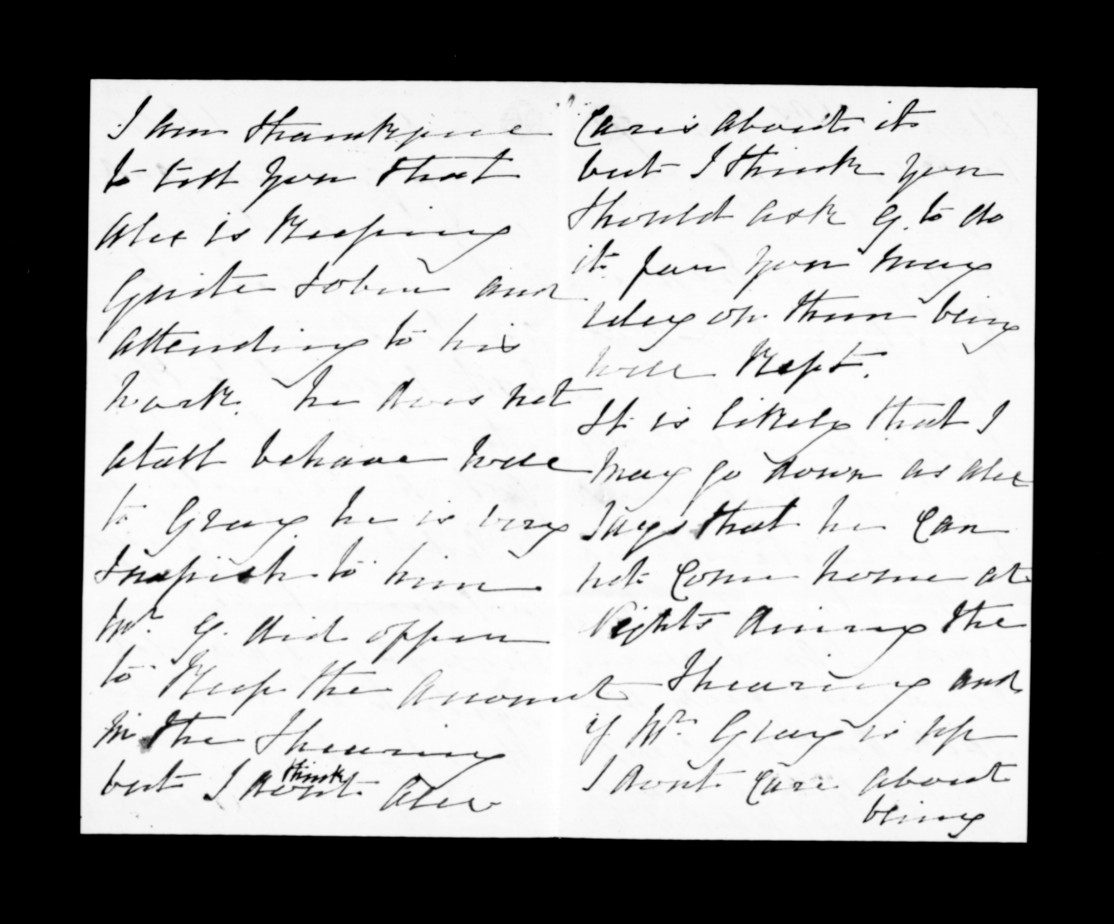 I am thankful
to tell you that
Alex is keeping
quite sober and
attending to his
work. he does not
atall behave well
to Gray he is very
to him
Mr. G. did offer
to keep the account
in the Shearing
but I dont think Alex
cares about it
but I think you
should ask G. to do
it for you may
rely on them being
well kept.
It is likely that I
may go down as Alex
says that he can
not come home at
Nights during the
Shearing and
if Mr. Gray is up
I dont care about
being